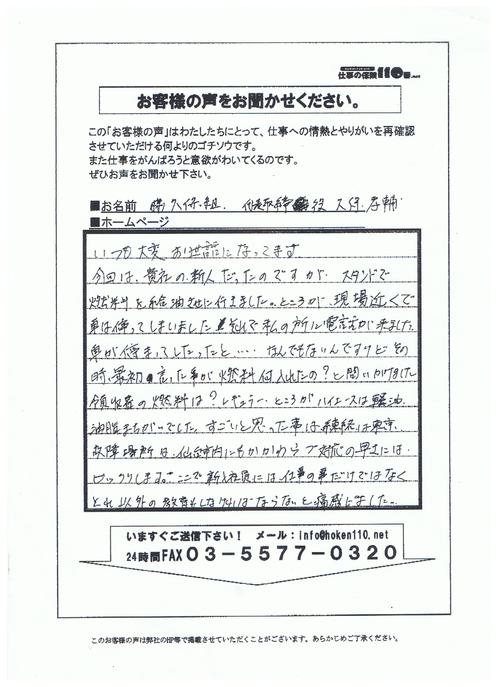 仕事の保険110番.net
お客様の声をお聞かせください。
この「お客様の声」はわたしたちにとって、仕事への情熱とやりがいを再確認
させていただける何よりのゴチソウです。
また仕事をがんばろうと意欲がわいてくるのです。
ぜひお声をお聞かせ下さい。
■お名前 ㈱久保組 代表取締役 久保
■ホームページ
いつも大変お世話になってます
今回は、貴社の新人だったのですが、スタンドで
燃料を給油させに行きました。ところが、現場近くで
車は停ってしまいました それで私の所に電話が来ました。
車が停まってしまったと…… なんでもないんですけど その
時、最初 言った事が燃料何入れたの？と問いかけました
領収書の燃料は？レギュラー、ところがハイエースは軽油
油脂まちがいでした。すごいと思った事は連絡は東京、
故障場所は、仙台市内にもかかわらず対応の早さには、
ビックリします。ここで新入社員には仕事の事だけではなく
それ以外の教育もしなければならないと痛感しました。
いますぐご送信下さい！ メール：info@hoken110.net
24時間FAX 03-5577-0320
このお客様の声は弊社のHP等で掲載させていただくことがございます。あらかじめご了承ください。